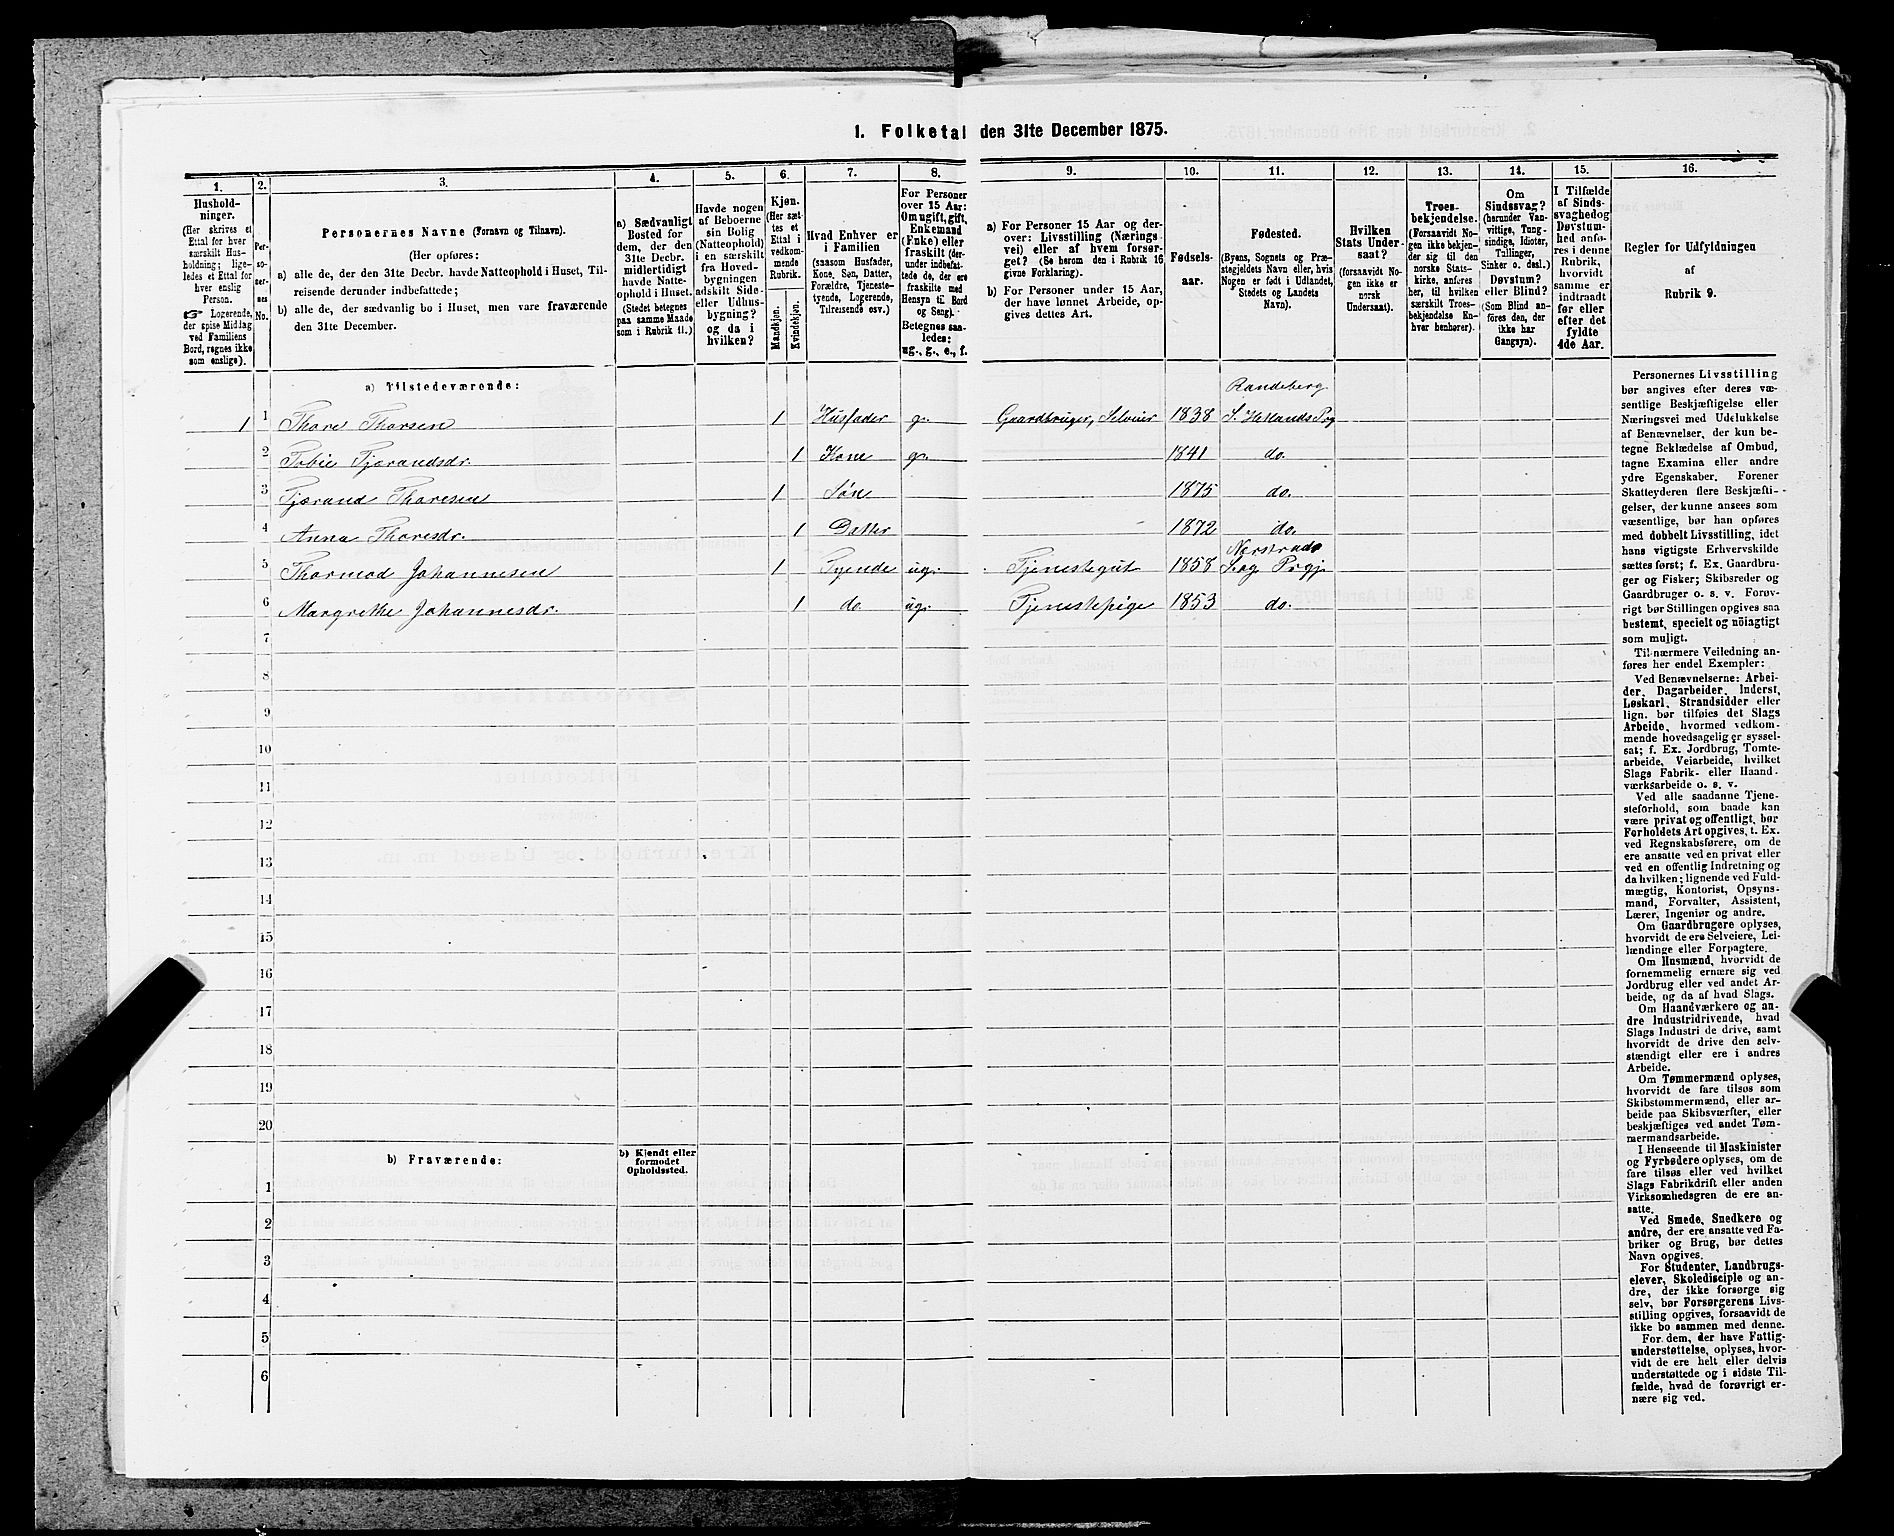 1. Folketal den 31te December 1875.
1.
2.
3.
4.
5.
6.
7.
8.
9.
10.
11.
12.
13.
14.
15.
16.
Hushold-
ninger.
(Her skrives et
Ettal for hver
særskilt Hus-
holdning; lige-
ledes et Ettal for
hver enslig
Person.
☞ Logerende,
der spise Midlag
ved Familiens
Bord, regnes ikke
som enslige).
Per-
so-
ner-
nes
No.
Personernes Navne (Fornavn og Tilnavn).
(Her opføres:
a) alle de, der den 31te Decbr. havde Natteophold i Huset, Til-
reisende derunder indbefattede;
b) alle de, der sædvanlig bo i Huset, men vare fraværende
den 31te December.
a) Sædvanligt
Bosted for
dem, der den
31te Decbr.
midlertidigt
havde Natte-
ophold i Huset.
(Stedet betegnes
paa samme Maade
som i Rubrik 11.)
Havde nogen
af Beboerne
sin Bolig
(Natteophold)
i en særskilt
fra Hoved-
bygningen
adskilt Side-
eller Udhus-
bygning?
og da i
hvilken?
Kjøn.
(Her sæt-
tes et
Ettal i
vedkom-
mende
Rubrik.
Mandkjøn.
Kvindekjøn.
Hvad Enhver er
i Familien
(saasom Husfader,
Kone, Søn, Datter,
Forældre, Tjeneste-
tyende, Logerende,
Tilreisende osv.)
For Personer
over 15 Aar:
Om ugift, gift,
Enkemand
(Enke) eller
fraskilt (der-
under indbefat-
tede de, der ere
fraskilte med
Hensyn til Bord
og Seng).
Betegnes saa-
ledes:
ug., g., e., f.
a) For Personer 15 Aar og der-
over: Livsstilling (Nærings-
vei) eller af hvem forsør-
get? (Se herom den i Rubrik 16
givne Forklaring).
b) For Personer under 15 Aar,
der have lønnet Arbeide, op-
gives dettes Art.
Fødsels-
aar.
Fødested.
(Byens, Sognets og Præ-
stegjeldets Navn eller, hvis
Nogen er født i Udlandet,
Stedets og Landets
Navn).
Hvilken
Stats Under-
saat?
(forsaavidt No-
gen ikke er
norsk
Undersaat).
Troes-
bekjendelse.
(Forsaavidt No-
gen ikke bekjen-
der sig til den
norske Stats-
kirke, anføres
her, til hvilken
særskilt Troes-
bekjendelse En-
hver henhører).
Om
Sindssvag?
(herunder Van-
vittige, Tung-
sindige, Idioter,
Tillinger,
Sinker o. desl.)
Døvstum?
eller Blind?
(Som Blind an-
føres den, der
ikke har
Gangsyn).
I Tilfælde
af Sinds-
svaghed og
Døvstum-
hed anfø-
res i denne
Rubrik,
hvorvidt
samme er
indtraadt
før eller
efter det
fyldte
4de Aar.
Regler for Udfyldningen
af
Rubrik 9.
a) Tilstedeværende:
Randeberg
1 1 Thore Thorsen 1 Husfader g. Gaardbruger, Selveier 1838 S. Hetlands Prg
2 Tobie Tjærandsdr. 1 Kone g. 1841 do.
3 Tjærand Thoresen 1 Søn 1875 do.
4 Anna Thoresdr. 1 Datter 1872 do.
Nerstrands
5 Thormod Johannesen 1 Tyende ug. Tjenestegut 1858 S. og Prgj.
6 Margrethe Johannesdr. 1 do. ug. Tjenestepige 1853 do.
7
8
9
10
11
12
13
14
15
16
17
18
19
20
b) Fraværende:
b) Kjendt eller
formodet
Opholdssted.
1
2
3
4
5
6
Personernes Livsstilling
bør angives efter deres væ-
sentlige Beskjæftigelse eller
Næringsvei med Udelukkelse
af Benævnelser, der kun be-
tegne Beklædelse af Ombud,
tagne Examina eller andre
ydre Egenskaber. Forener
Skatteyderen flere Beskjæfti-
gelser, der kunne ansees som
væsentlige, bør han opføres
med dobbelt Livsstilling, idet
hans vigtigste Erhvervskilde
sættes først; f. Ex. Gaardbru-
ger og Fisker; Skibsreder og
Gaardbruger o. s. v. Forøv-
rigt bør Stillingen opgives saa
bestemt, specielt og nöiagtigt
som muligt.
Til nærmere Veiledning an-
føres her endel Exempler:
Ved Benævnelserne: Arbei-
der, Dagarbeider, Inderst,
Løskarl, Strandsidder eller
lign. bør tilføies det Slags
Arbeide, hvormed vedkom-
mende hovedsagelig er syssel-
sat; f. Ex. Jordbrug, Tomte-
arbeide, Veiarbeide, hvilket
Slags Fabrik- eller Haand-
værksarbeide o. s. v.
Ved alle saadanne Tjene-
steforhold, som baade kan
være privat og offentligt, bør
Forholdets Art opgives, t. Ex.
ved Regnskabsførere, om de
ere ansatte ved en privat eller
ved en offentlig Indretning og
da hvilken; lignende ved Fuld-
mægtig, Kontorist, Opsyns-
mand, Forvalter, Assistent,
Lærer, Ingeniør og andre.
Om Gaardbrugere oplyses,
hvorvidt de ere Selveiere, Lei-
lændinge eller Forpagtere.
Om Husmænd, hvorvidt de
fornemmelig ernære sig ved
Jordbrug eller ved andet Ar-
beide, og da af hvad Slags.
Om Haandværkere og an-
dre Industridrivende, hvad
Slags Industri de drive, samt
hvorvidt de drive den selv-
stændigt eller ere i andres
Arbeide.
Om Tømmermænd oplyses,
hvorvidt de fare tilsøs som
Skibstømmermænd, eller ar-
beide paa Skibsværfter, eller
beskjæftiges ved andet Tøm-
mermandsarbeide.
I Henseende til Maskinister
og Fyrbødere oplyses, om de
fare tilsøs eller ved hvilket
Slags Fabrikdrift eller anden
Virksomhedsgren de ere an-
satte.
Ved Smede, Snedkere og
andre, der ere ansatte ved Fa-
briker og Brug, bør dettes
Navn opgives.
For Studenter, Landbrugs-
elever, Skoledisciple og an-
dre, der ikke forsørge sig
selv, bør Forsørgerens Livs-
stilling opgives, forsaavidt de
ikke bo sammen med denne.
For dem, der have Fattig-
understøttelse, oplyses, hvor-
vidt de ere helt eller delvis
understøttede og i sidste Til-
fælde, hvad de forøvrigt er-
nære sig ved.